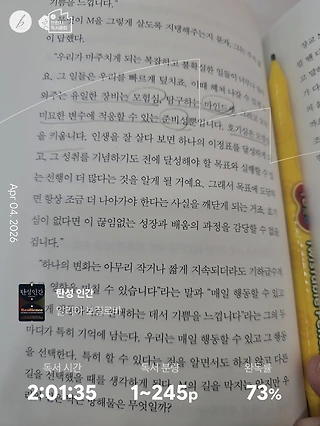 기쁨을 느낍니다."
M을 그렇게 살도록 지탱해주는지
이 답했다.
"우리가 마주치게 되는 복잡하고 불확실한 일들이
요. 그 일들은 우리를 빠르게 덮치죠. 이때 헤쳐 나갈 수
와주는 유일한 장비는 모험심, 탐구하는 마인드
미묘한 변수에 적응할 수 있는 준비성뿐입니다. 호기심은
을 키웁니다. 인생을 잘 살다 보면 하나의 이정표를 달성하
고, 그 성취를 기념하기도 전에 달성해야 할 목표와 실행할 수
는 선행이 더 많다는 것을 알게 될 거예요. 그래서 목표에 도달
면 항상 조금 더 나아가야 한다는 사실을 깨닫게 되는 거죠. 호기
심이 없다면 이 끊임없는 성장과 배움의 과정을 감당할 수 없을
겁니다."
"하나의 변화는 아무리 작거나 짧게 지속되더라도 기하급수적
영향을 미칠 수 있습니다"라는 말과 "매일 행동할 수 있고
하는 데서 기쁨을 느낍니다"라는 그의 두
마디가 특히 기억에 남는다. 우리는 매일 행동할 수 있고 그 행동
을 선택한다. 특히 할 수 있다는 것을 알면서도 하지 않고 다른
길을 선택했을 때를 생각하게 된다. M의 길을 막지는 않지만 우
는 방해물은 무엇일까?
Apr 04. 2026
탄성 인간
탄성 인간
독서 시간
독서 분량
완독률
2:01:35
1~245p
73%